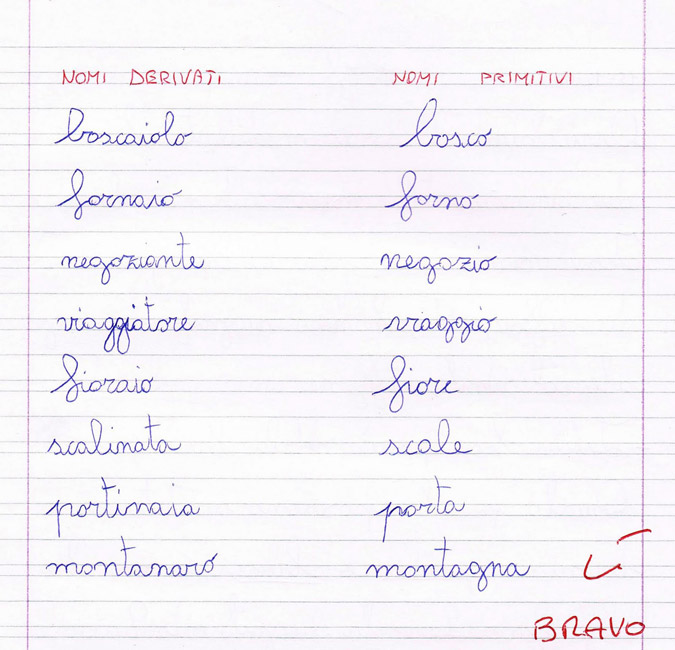 NOMI DERIVATI NOMI PRIMITIVI
boscaiolo bosco
fornaio forno
negoziante negozio
viaggiatore viaggio
fioraio fiore
scalinata scale
portinaia porta
montanaro montagna
BRAVO